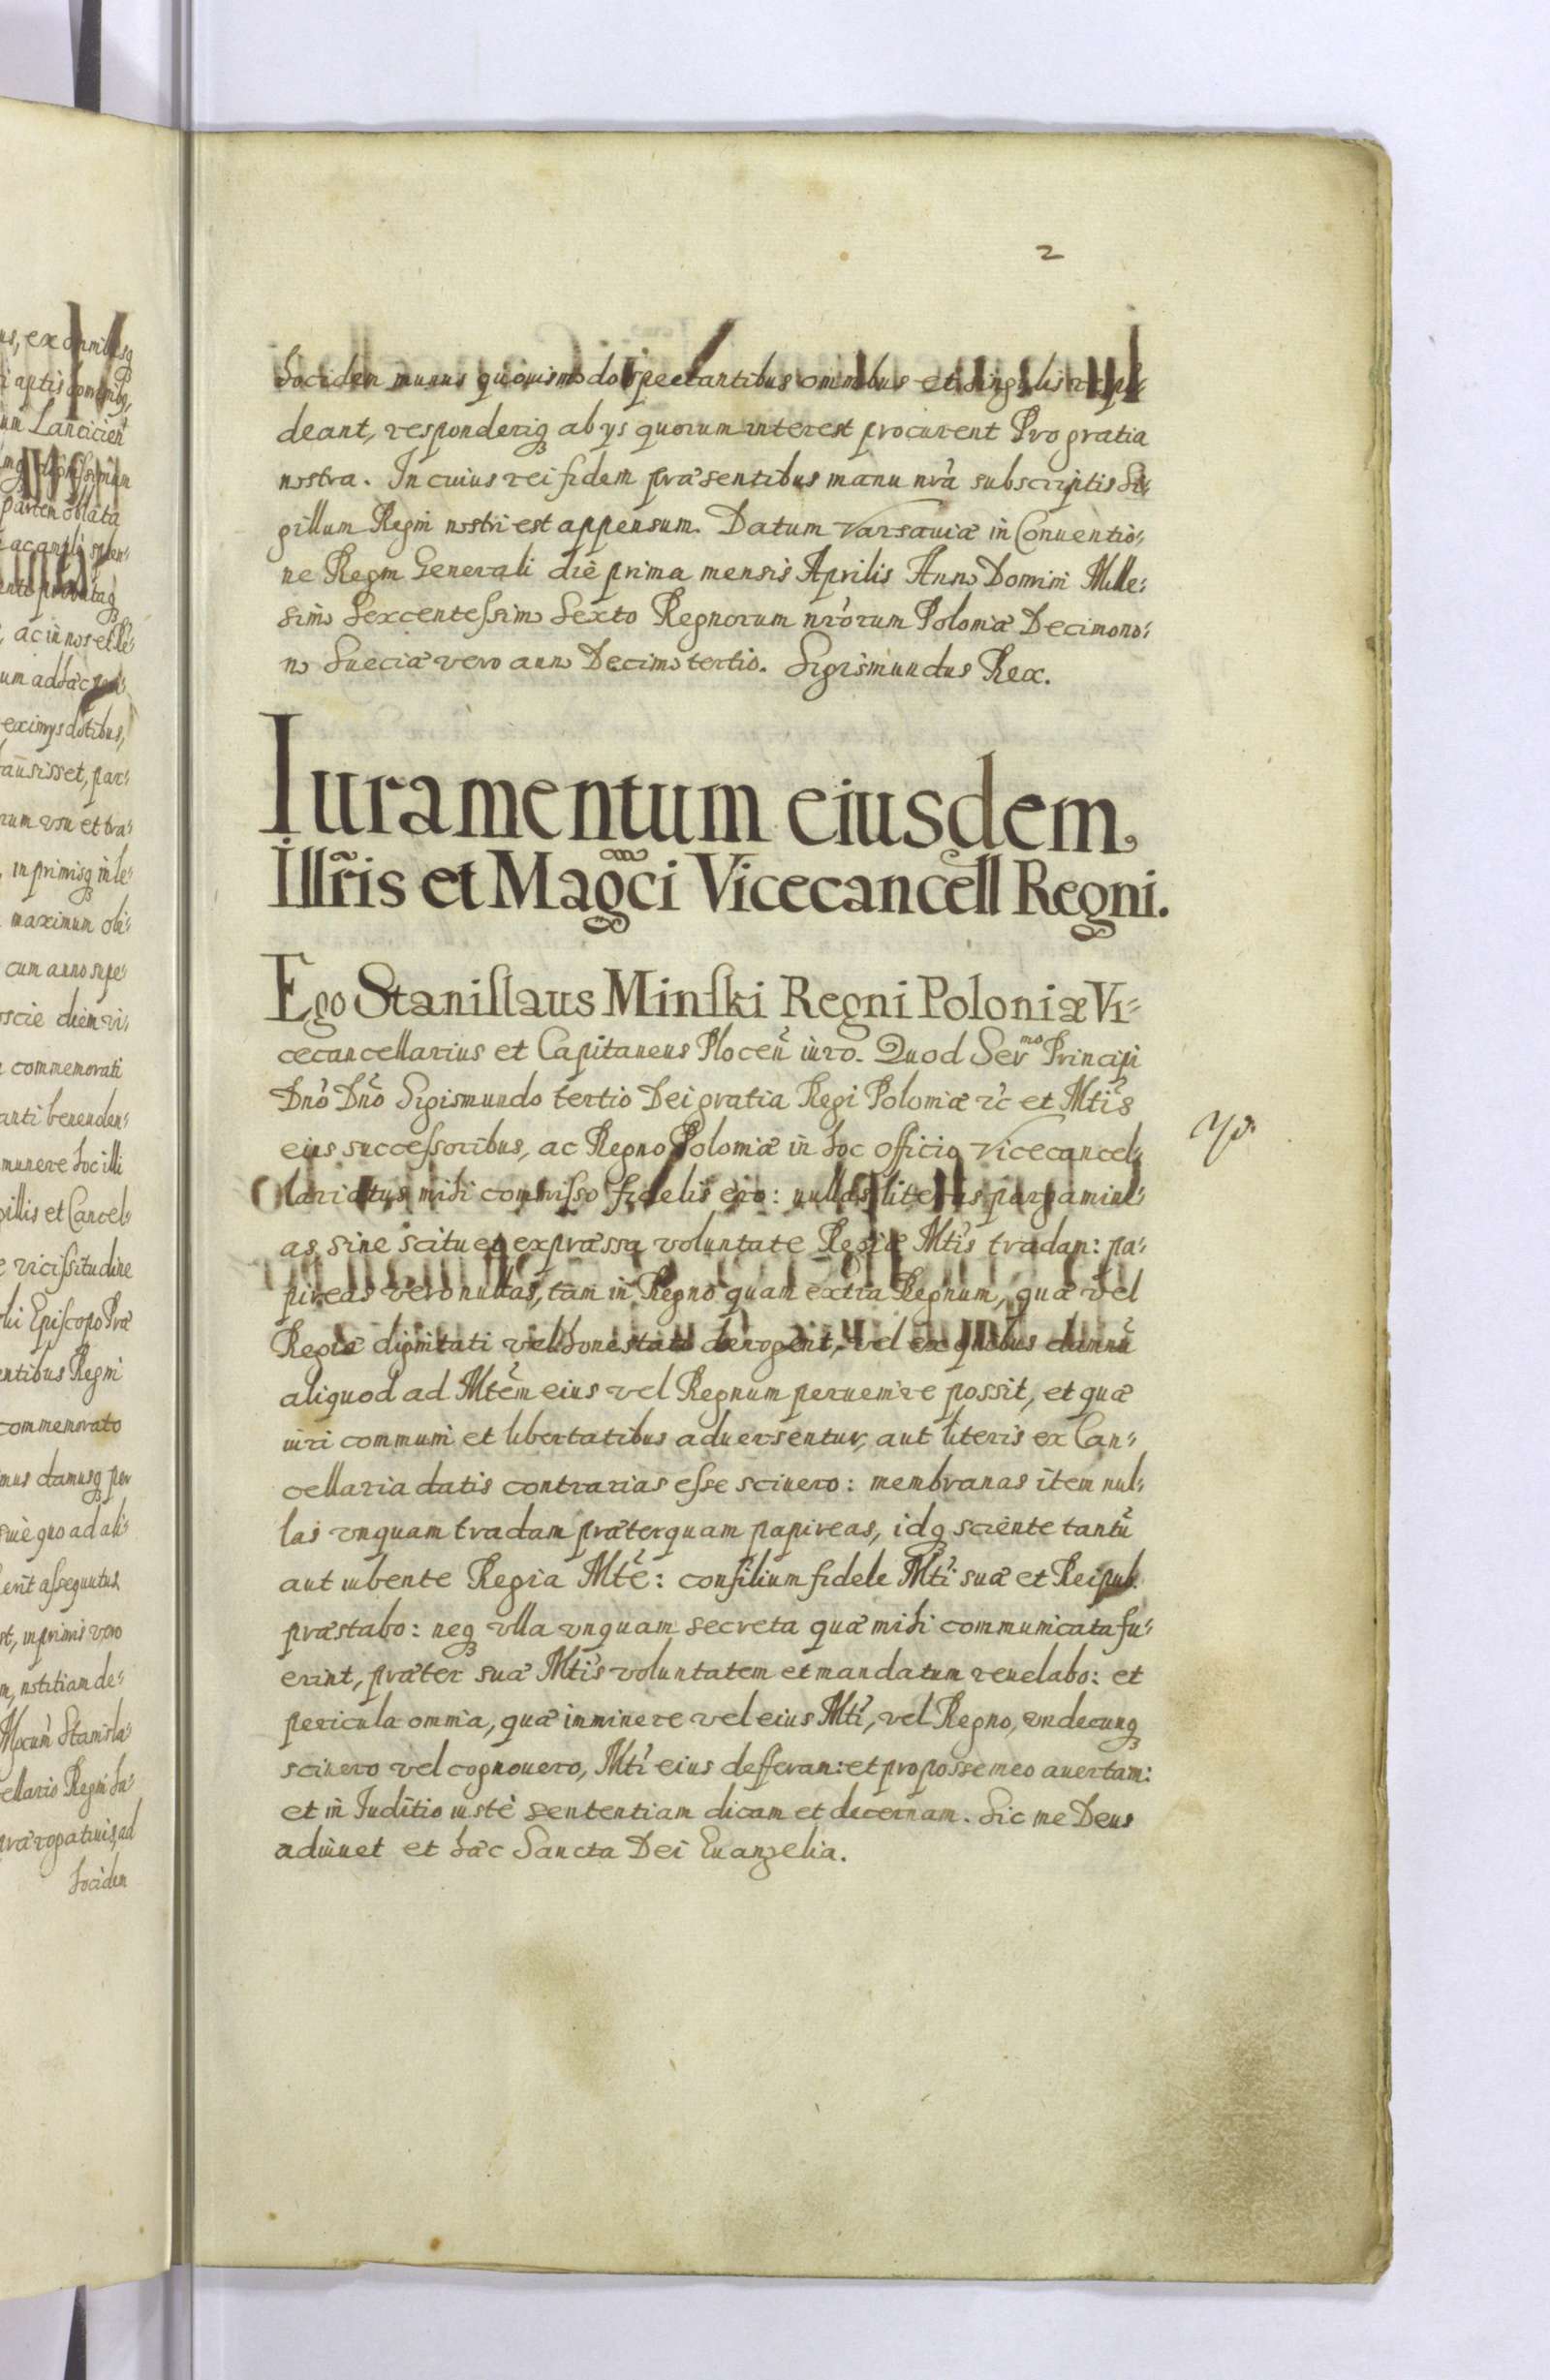 2
hocidem munus quouismodo spectantibus omnibus et singulis respon-
deant, responderiq; ab ijs quorum interest procurent Pro gratia
nostra. In cuius rei fidem præsentibus manu nrã subscriptis Si-
gillum Regni nostri est appensum. Datum Varsauiæ in Conuentio-
ne Regni Generali die prima mensis Aprilis Anno Domini Mille-
simo Sexcentesimo Sexto Regnorum nrõrum Poloniæ Decimono-
no Sueciæ vero anno Decimo tertio. Sigismundus Rex.
Iuramentum eiusdem
Illr̃is et Mag̃ci Vicecancell Regni.
Ego Stanislaus Minski Regni Poloniæ Vi-
cecancellarius et Capitaneus Ploceñ iuro. Quod Ser^mo Principi
Dnõ Dnõ Sigismundo tertio Dei gratia Regi Poloniæ &c et Mtis
eius successoribus, ac Regno Poloniæ in hoc officio Vicecancel-
lariatus mihi commisso fidelis ero: nullas literas pargamine-
as sine scitu et expræssa voluntate Regiæ Mtis tradam: pa-
pireas vero nullas, tam in Regno quam extra Regnum, quæ vel
Regiæ dignitati vel honestati derogent, vel ex quibus damnũ
aliquod ad Mtẽm eius vel Regnum peruenire possit, et quæ
iuri communi et libertatibus aduersentur, aut literis ex Can-
cellaria datis contrarias esse sciuero: membranas item nul-
las vnquam tradam præterquam papireas, idq; sciente tantũ
aut iubente Regia Mtẽ: consilium fidele Mti suæ et Reipub.
præstabo: neq; vlla vnquam secreta quæ mihi communicata fu-
erint, præter suæ Mtis voluntatem et mandatum reuelabo: et
pericula omnia, quæ imminere vel eius Mti, vel Regno, vndecunq;
sciuero vel cognouero, Mti eius defferam: et pro posse meo auertam:
et in Juditio iustè sententiam dicam et decernam. Sic me Deus
adiuuet et hæc Sancta Dei Euangelia.